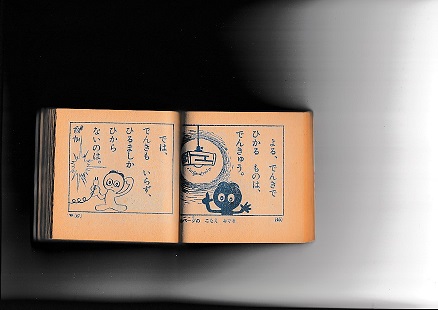 よる、でんきで
ひかる ものは、
でんきゅう。
では、
でんきも いらず、
ひるましか
ひから
ないのは。